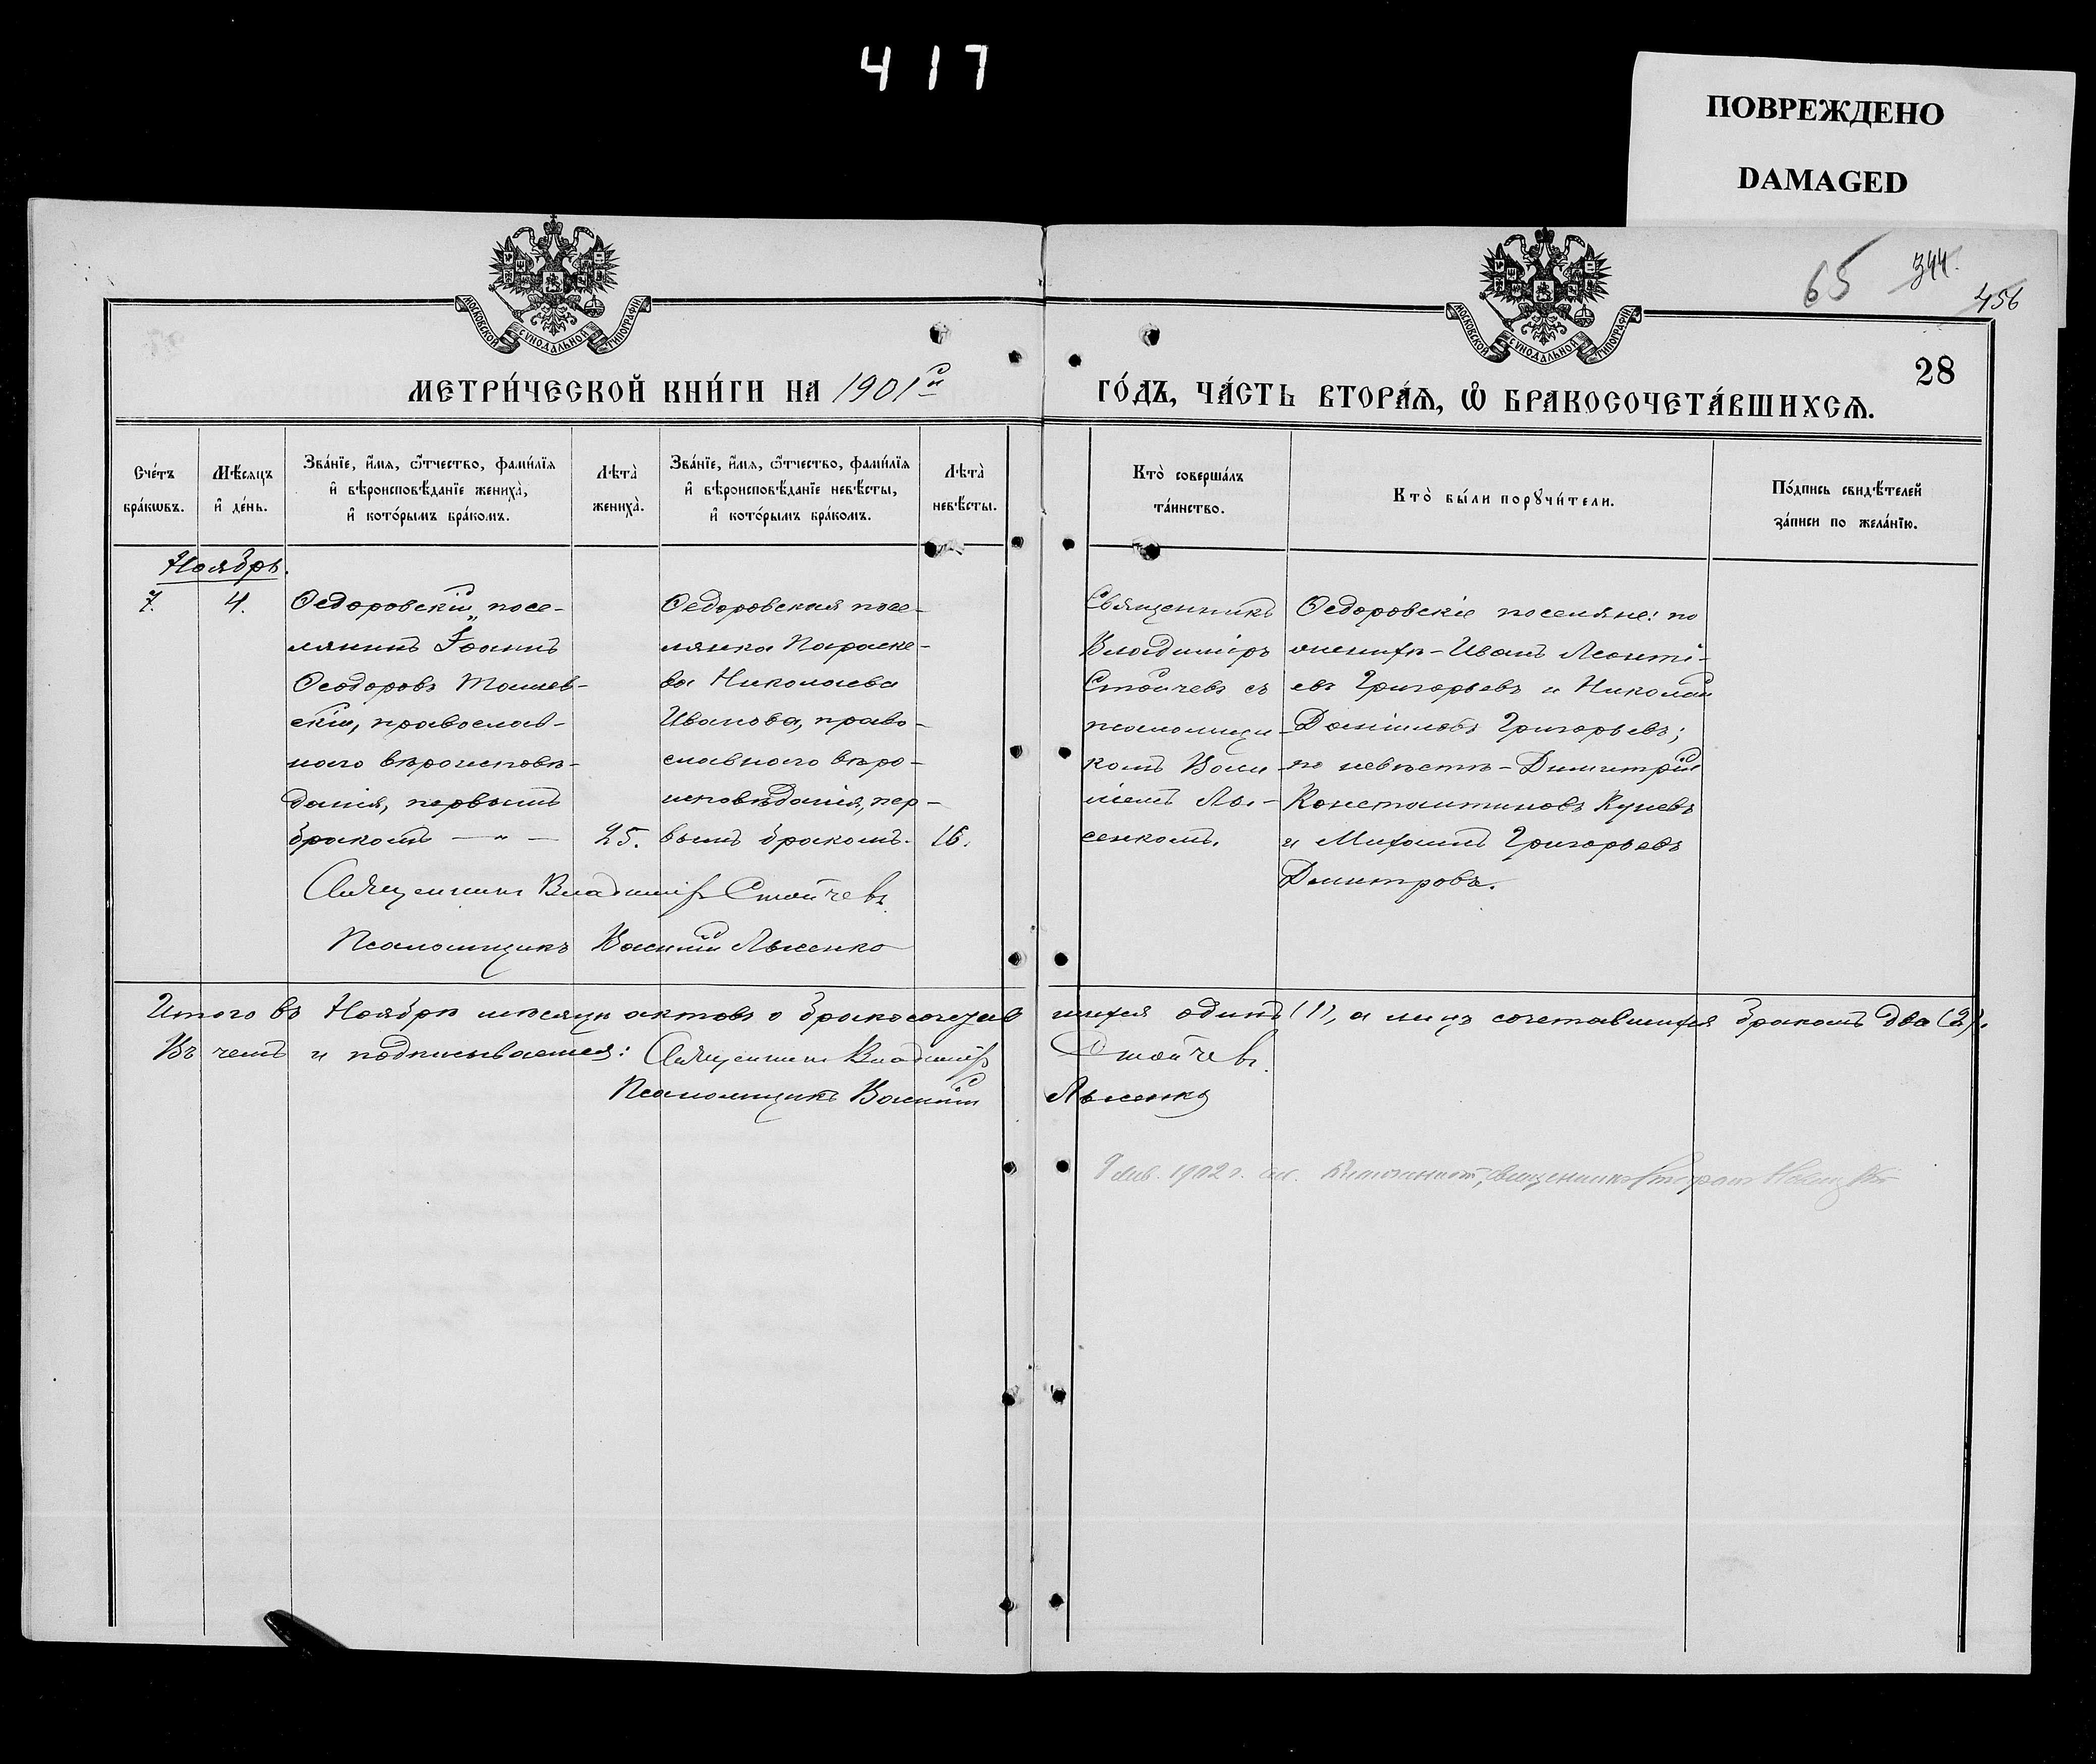 417
ПОВРЕЖДЕНО
DAMAGED
65 344. 456
28
МОСКОВСКОЙ СѴНОДАЛЬНОЙ ТИПОГРАФІИ
МОСКОВСКОЙ СѴНОДАЛЬНОЙ ТИПОГРАФІИ
МЕТРИ́ЧЕСКОЙ КНИ́ГИ НА 1901й
ГО́ДЪ, ЧА́СТЬ ВТОРА́Ѧ, Ѡ҆ БРАКОСОЧЕТА́ВШИХСѦ.
Сче́тъ
бра́кѡвъ.
Мѣ́сѧцъ
и҆ де́нь.
Зва́нїе, и҆́мѧ, ѻ҆́тчество, фами́лїѧ
и҆ вѣроисповѣ́данїе жениха̀,
и҆ кото́рымъ бра́комъ.
Лѣта̀
жениха̀.
Зва́нїе, и҆́мѧ, ѻ҆́тчество, фами́лїѧ
и҆ вѣроисповѣ́данїе невѣ́сты,
и҆ кото́рымъ бра́комъ.
Лѣта̀
невѣ́сты.
Кто̀ соверша́лъ
та́инство.
Кто̀ бы́ли порꙋчи́тели.
По́дпись свидѣ́телей
за́писи по жела́нїю.
Ноябрь.
7.
4.
Ѳедоровскій посе-
лянинъ Іоаннъ
Ѳеодоровъ Ташев-
скій, православ-
наго вѣроисповѣ-
данія, первымъ
бракомъ — „ —
25.
Ѳедоровская посе-
лянка Параске-
ва Николаева
Иванова, право-
славнаго вѣро-
исповѣданія, пер-
вымъ бракомъ.
16.
Священникъ
Владиміръ
Стойчевъ съ
псаломщи-
комъ Васи-
ліемъ Лы-
сенкомъ.
Ѳедоровскіе поселяне: по
женихѣ - Иванъ Леонті-
евъ Григорьевъ и Николай
Даніиловъ Григорьевъ;
по невѣстѣ - Димитрій
Константиновъ Куневъ
и Михаилъ Григорьевъ
Димитровъ.
Священникъ Владиміръ Стойчевъ
Псаломщикъ Василій Лысенко
Итого въ Ноябрѣ мѣсяцѣ актовъ о бракосочетав шихся одинъ (1), а лицъ сочетавшихся бракомъ два (2).
Въ чемъ и подписываемся: Священникъ Владиміръ Стойчевъ.
Псаломщикъ Василій Лысенко
1902 г. священникъ